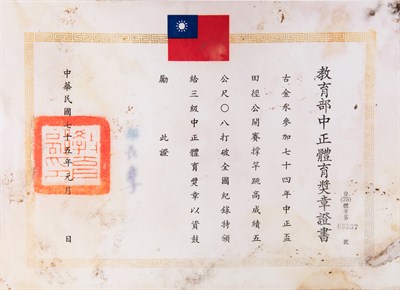 教育部中正體育獎章證書
古金水參加七十四年中正盃
田徑公開賽撐竿跳高成績五
公尺〇八打破全國紀錄特頒
給三級中正體育獎章以資鼓
勵 此證
中華民國七十五年元月 日